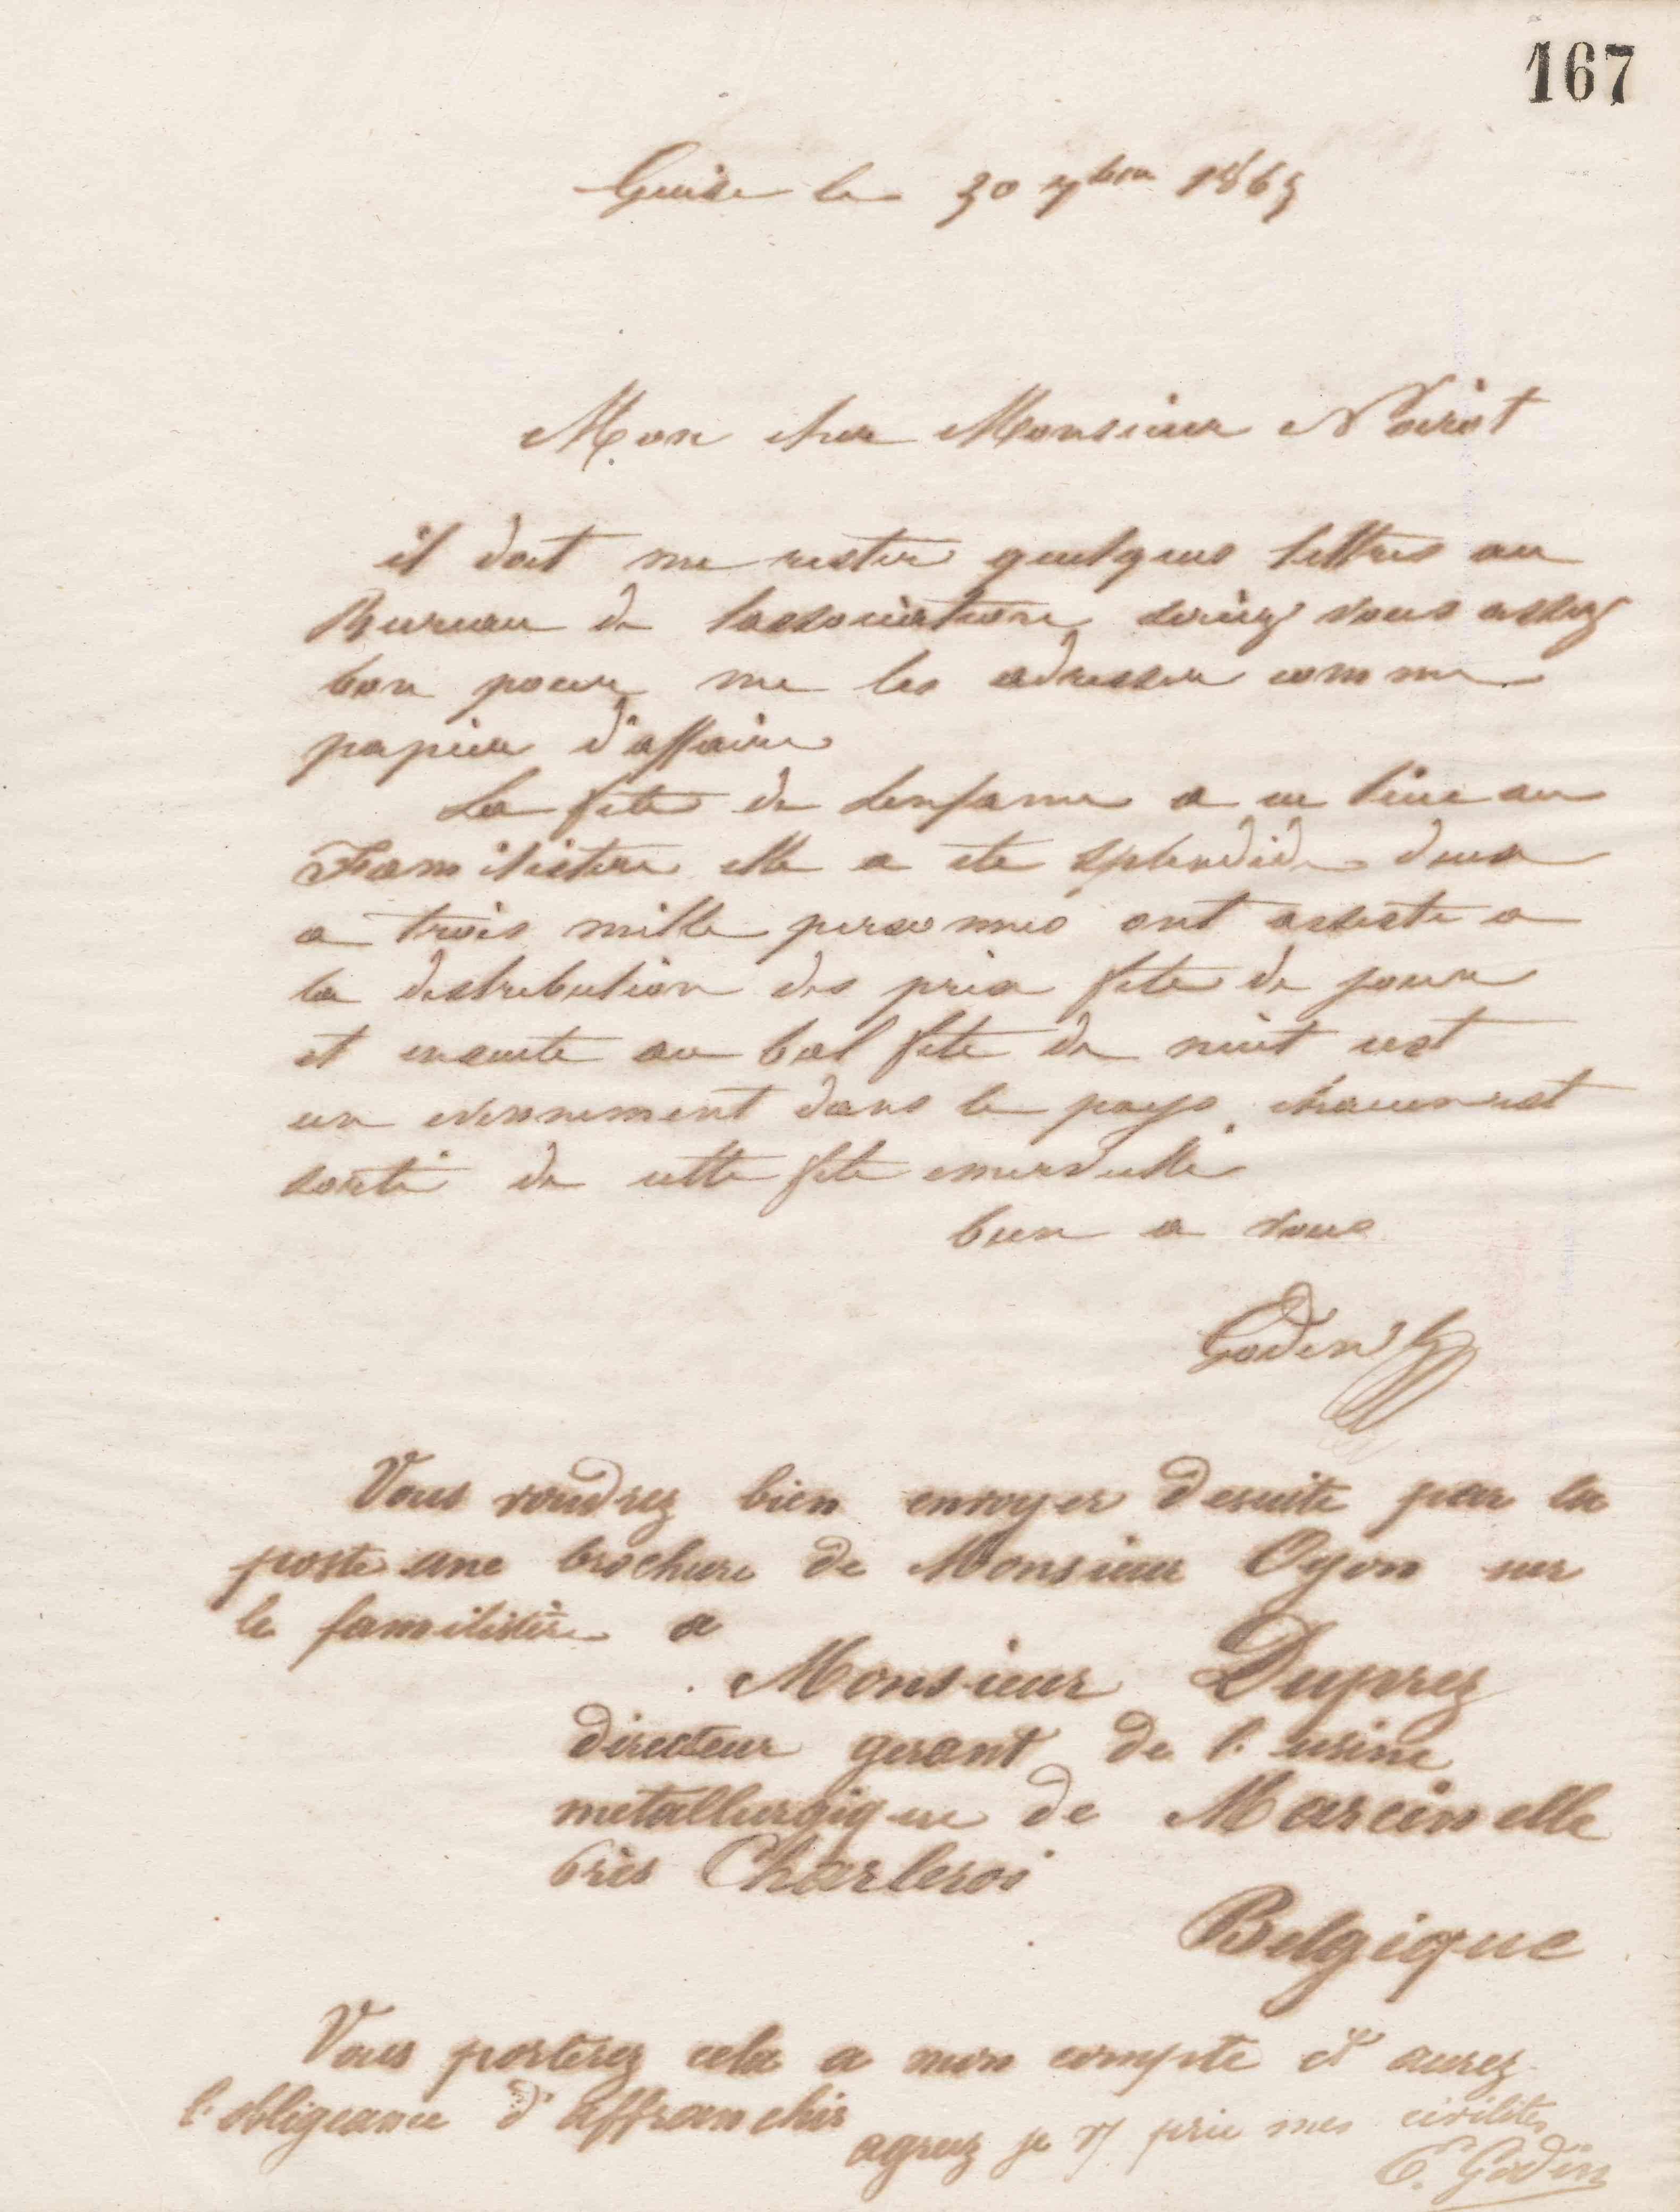 167
Guise le 30 7bre 1865
Mon cher Monsieur Noirot
il doit me rester quelques lettres au
Bureau de lassociation seriez vous assez
bon pour me les adresser comme
papier d'affaire
La fete de Lenfance a eu lieu au
Familistere elle a ete splendide deux
a trois mille personnes ont assiste a
la distribution des prix fete de jour
et ensuite au bal fete de nuit cest
un evennement dans le pays chacun est
sorti de cette fete emerveillé
bien a vous
Godin
Vous voudrez bien envoyer desuite par la
poste une brochure de Monsieur Oyon sur
le familistère a
Monsieur Duprez
directeur gerant de l'usine
metallurgique de Marcinelle
près Charleroi
Belgique
Vous porterez cela a mon compte et aurez
l'obligeance d'affranchir
agreez je vs prie mes civilités
E. Godin